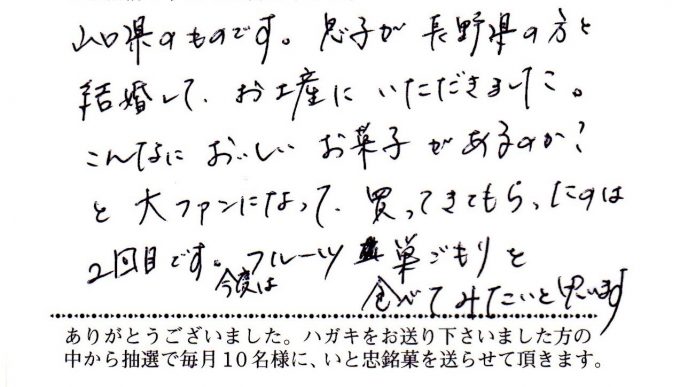 山口県のものです。息子が長野県の方と
結婚して、お土産にいただきました。
こんなにおいしいお菓子があるのか?
と大ファンになって、買ってきてもらったのは
2回目です。今度はフルーツ巣ごもりを
食べてみたいと思います
ありがとうございました。ハガキをお送り下さいました方の
中から抽選で毎月10名様に、いと忠銘菓を送らせて頂きます。